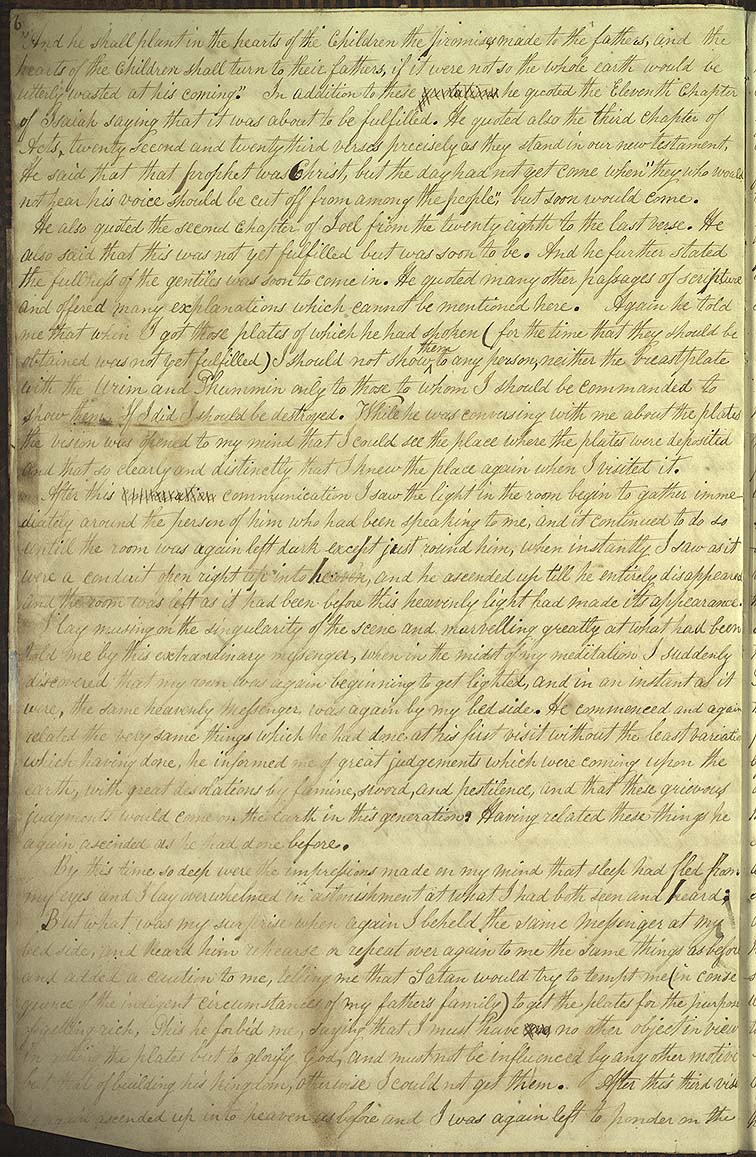 6
"And he shall plant in the hearts of the Children the promises made to the fathers, and the
hearts of the Children shall turn to their fathers, if it were not so the whole earth would be
utterly wasted at his coming". In addition to these he quoted the Eleventh Chapter
of Isaiah saying that it was about to be fulfilled. He quoted also the third chapter of
Acts, twenty second and twenty third verses precisely as they stand in our new testament.
He said that that prophet was Christ, but the day had not yet come when "they who would
not hear his voice should be cut off from among the people", but soon would come.
He also quoted the second chapter of Joel from the twenty eighth to the last verse. He
also said that this was not yet fulfilled but was soon to be. And he further stated
the fullness of the gentiles was soon to come in. He quoted many other passages of scripture
and offered many explanations which cannot be mentioned here. Again he told
me that when I got those plates of which he had spoken (for the time that they should be
obtained was not yet fulfilled) I should not show them to any person, neither the breastplate
with the Urim and Thummim only to those to whom I should be commanded to
show them. If I did I should be destroyed. While he was conversing with me about the plates
the vision was opened to my mind that I could see the place where the plates were deposited
and that so clearly and distinctly that I knew the place again when I visited it.
After this communication I saw the light in the room begin to gather imme-
diately around the person of him who had been speaking to me, and it continued to do so
untill the room was again left dark except just round him, when instantly I saw as it
were a conduit open right up into heaven, and he ascended up till he entirely disappeared
and the room was left as it had been before this heavenly light had made its appearance.
I lay musing on the singularity of the scene and marvelling greatly at what had been
told me by this extraordinary messenger, when in the midst of my meditation I suddenly
discovered that my room was again beginning to get lighted, and in an instant as it
were, the same heavenly messenger was again by my bedside. He commenced and again
related the very same things which he had done at his first visit without the least variation
which having done, he informed me of great judgements which were coming upon the
earth, with great desolations by famine, sword, and pestilence, and that these grievous
judgments would come on the earth in this generation: Having related these things he
again ascended as he had done before.
By this time so deep were the impressions made on my mind that sleep had fled from
my eyes and I lay overwhelmed in astonishment at what I had both seen and heard;
But what was my surprise when again I beheld the same messenger at my
bed side, and heard him rehearse or repeat over again to me the same things as before
and added a caution to me, telling me that Satan would try to tempt me (in conse
quence of the indigent circumstances of my father's family) to get the plates for the purpose
of getting rich, This he forbid me, saying that I must have no other object in view
in getting the plates but to glorify God, and must not be influenced by any other motive
but that of building his kingdom, otherwise I could not get them. After this third visit
he again ascended up into heaven as before and I was again left to ponder on the